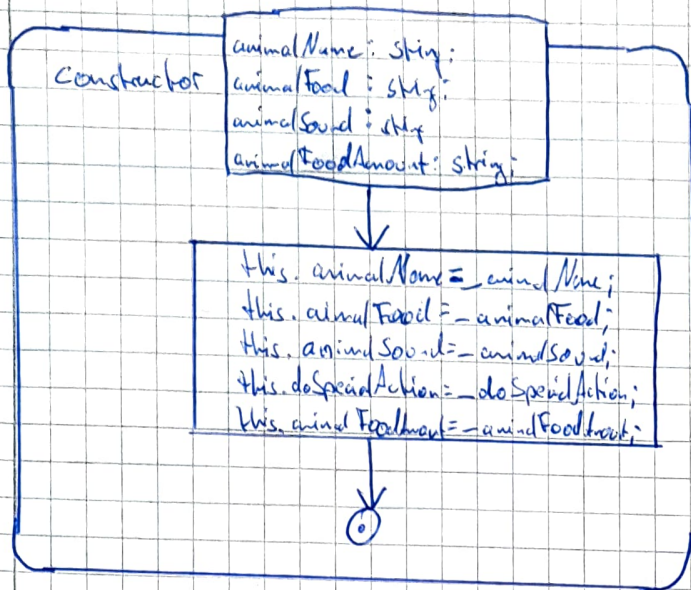 constructor
animalName: string;
animalFood: string;
animalSound: string
animalFoodAmount: string;
this.animalName=_animalName;
this.animalFood=_animalFood;
this.animalSound=_animalSound;
this.doSpecialAction=_doSpecialAction;
this.animalFoodAmount=_animalFoodAmount;